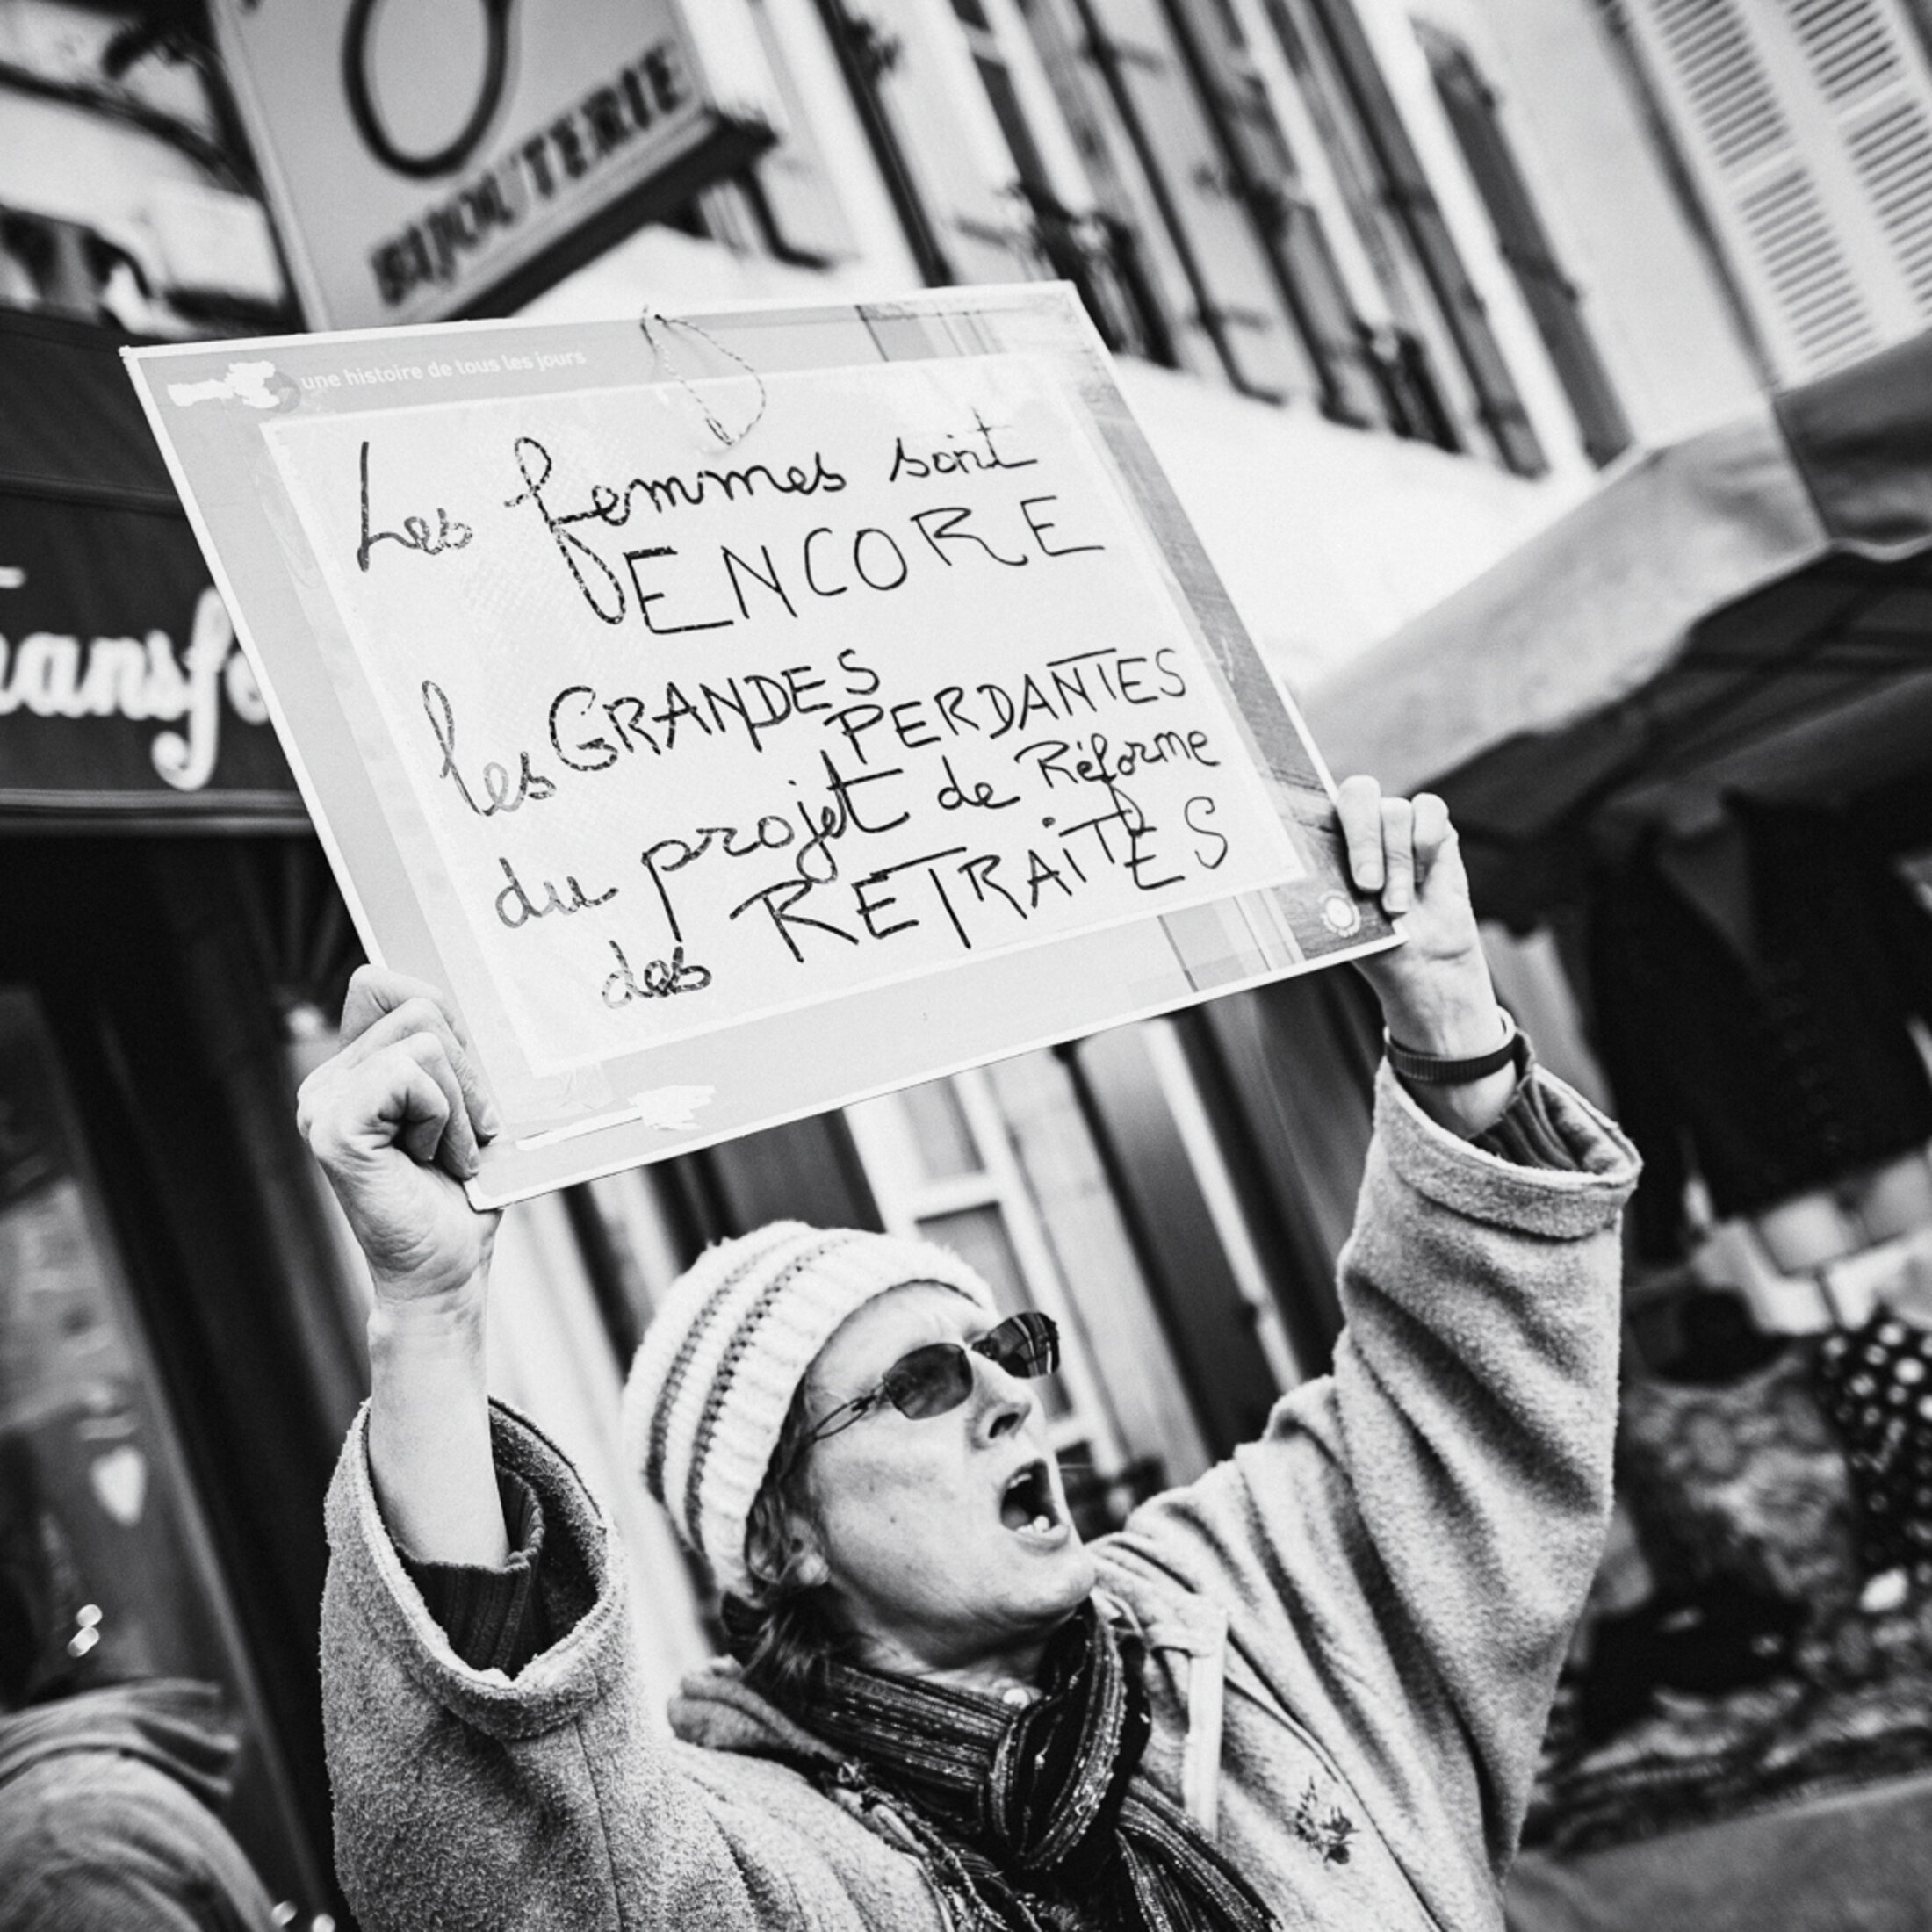 BIJOUTERIE
une histoire de tous les jours
Les femmes sont
ENCORE
les GRANDES
PERDANTES
du projet de Réforme
des RETRAITES